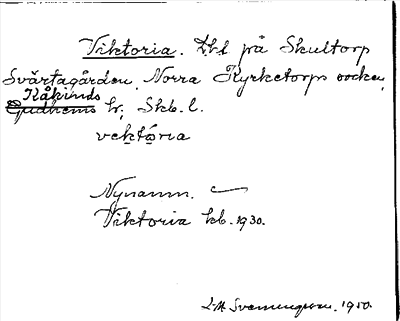 Viktoria. Lht på Skultorp
Svärtagården, Norra Kyrketorps socken,
Kåkinds
Gudhems hr; Skb. l.
vektória
Nynamn.
Viktoria kb. 1930.
1950.